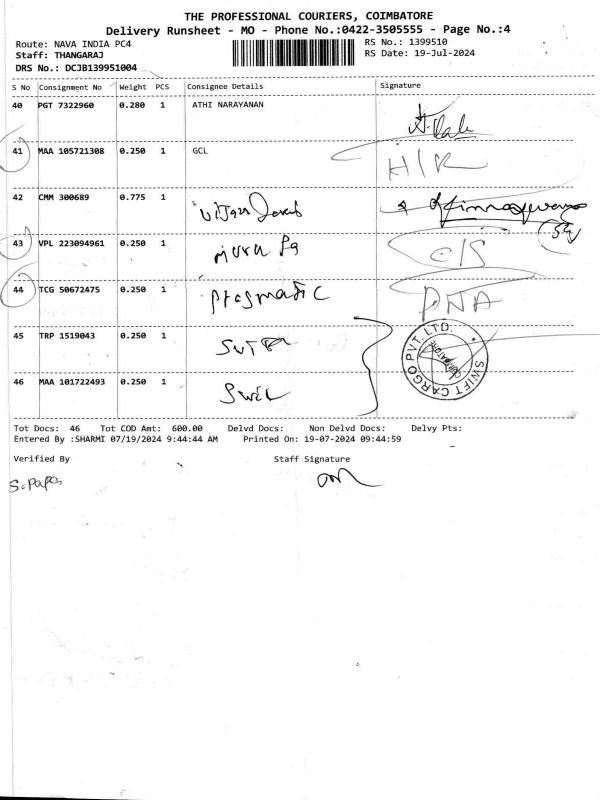 THE PROFESSIONAL COURIERS, COIMBATORE
Delivery Runsheet - MO - Phone No.:0422-3505555 - Page No.:4
Route: NAVA INDIA PC4
RS No.: 1399510
Staff: THANGARAJ
RS Date: 19-Jul-2024
DRS No.: DCJB139951004
S No Consignment No Weight PCS Consignee Details Signature
40 PGT 7322960 0.280 1 ATHI NARAYANAN
41 MAA 105721308 0.250 1 GCL H/R
42 CMM 300689 0.775 1
43 VPL 223094961 0.250 1
44 TCG 50672475 0.250 1 DNA
45 TRP 1519043 0.250 1
46 MAA 101722493 0.250 1
SWIFT CARGO PVT. LTD.
COIMBATORE
Tot Docs: 46 Tot COD Amt: 600.00 Delvd Docs: Non Delvd Docs: Delvy Pts:
Entered By :SHARMI 07/19/2024 9:44:44 AM Printed On: 19-07-2024 09:44:59
Verified By Staff Signature